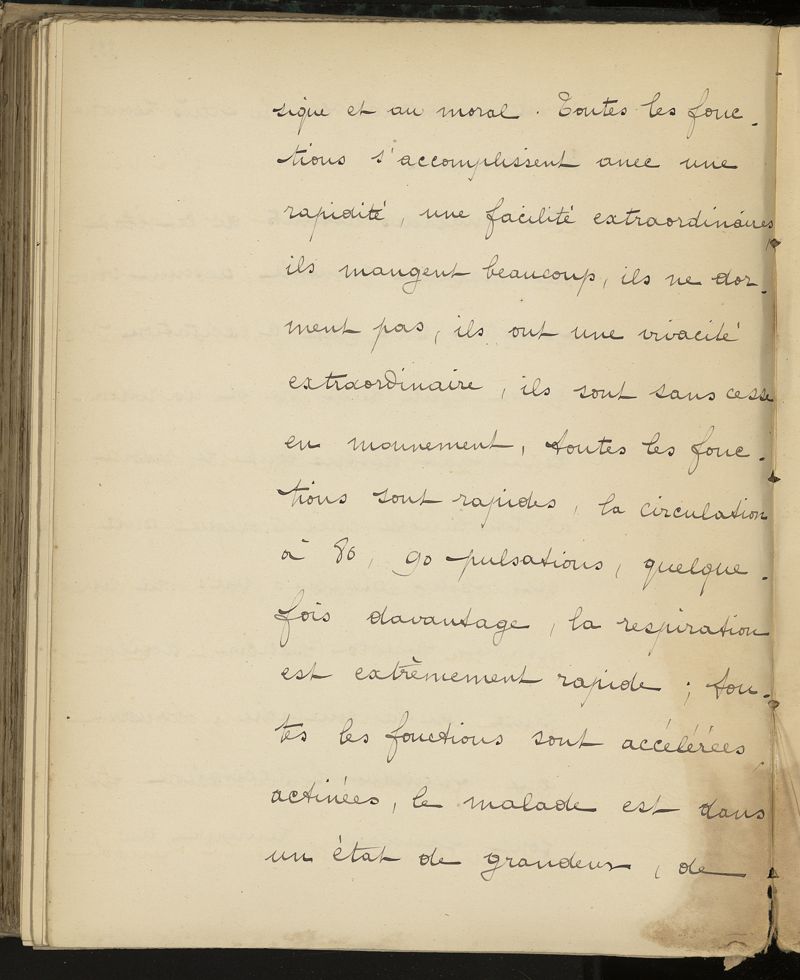 sique et au moral. Toutes les fonc-
tions s'accomplissent avec une
rapidité, une facilité extraordinaires,
ils mangent beaucoup, ils ne dor-
ment pas, ils ont une vivacité
extraordinaire, ils sont sans cesse
en mouvement, toutes les fonc-
tions sont rapides, la circulation
à 80, 90 pulsations, quelque-
fois davantage, la respiration
est extrèmement rapide; tou-
tes les fonctions sont accélérées,
activées, le malade est dans
un état de grandeur, de